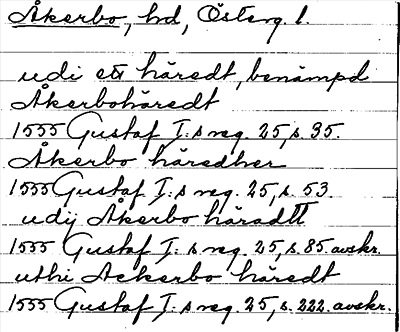 Åkerbo, hd, Österg. l.
udi ett häredt, benämpd
Åkerbohäredt
1555 Gustaf I:s reg. 25, s. 35.
Åkerbo häredher
1555 Gustaf I:s reg. 25, s. 53.
udij Åkerbo häradtt
1555 Gustaf I:s reg. 25, s. 85. avskr.
uthi Ackerbo häredt
1555 Gustaf I:s reg. 25, s. 222. avskr.